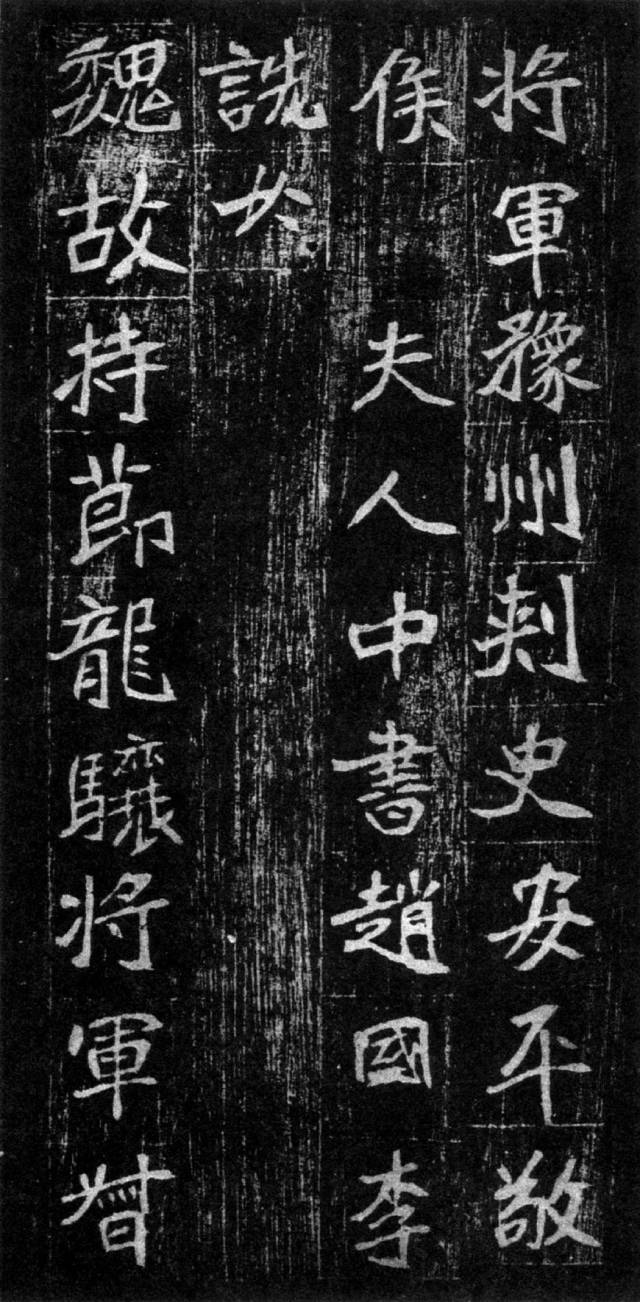 將軍豫州刺史安平敬
侯 夫人中書趙國李
詵女
魏故持節龍驤將軍督